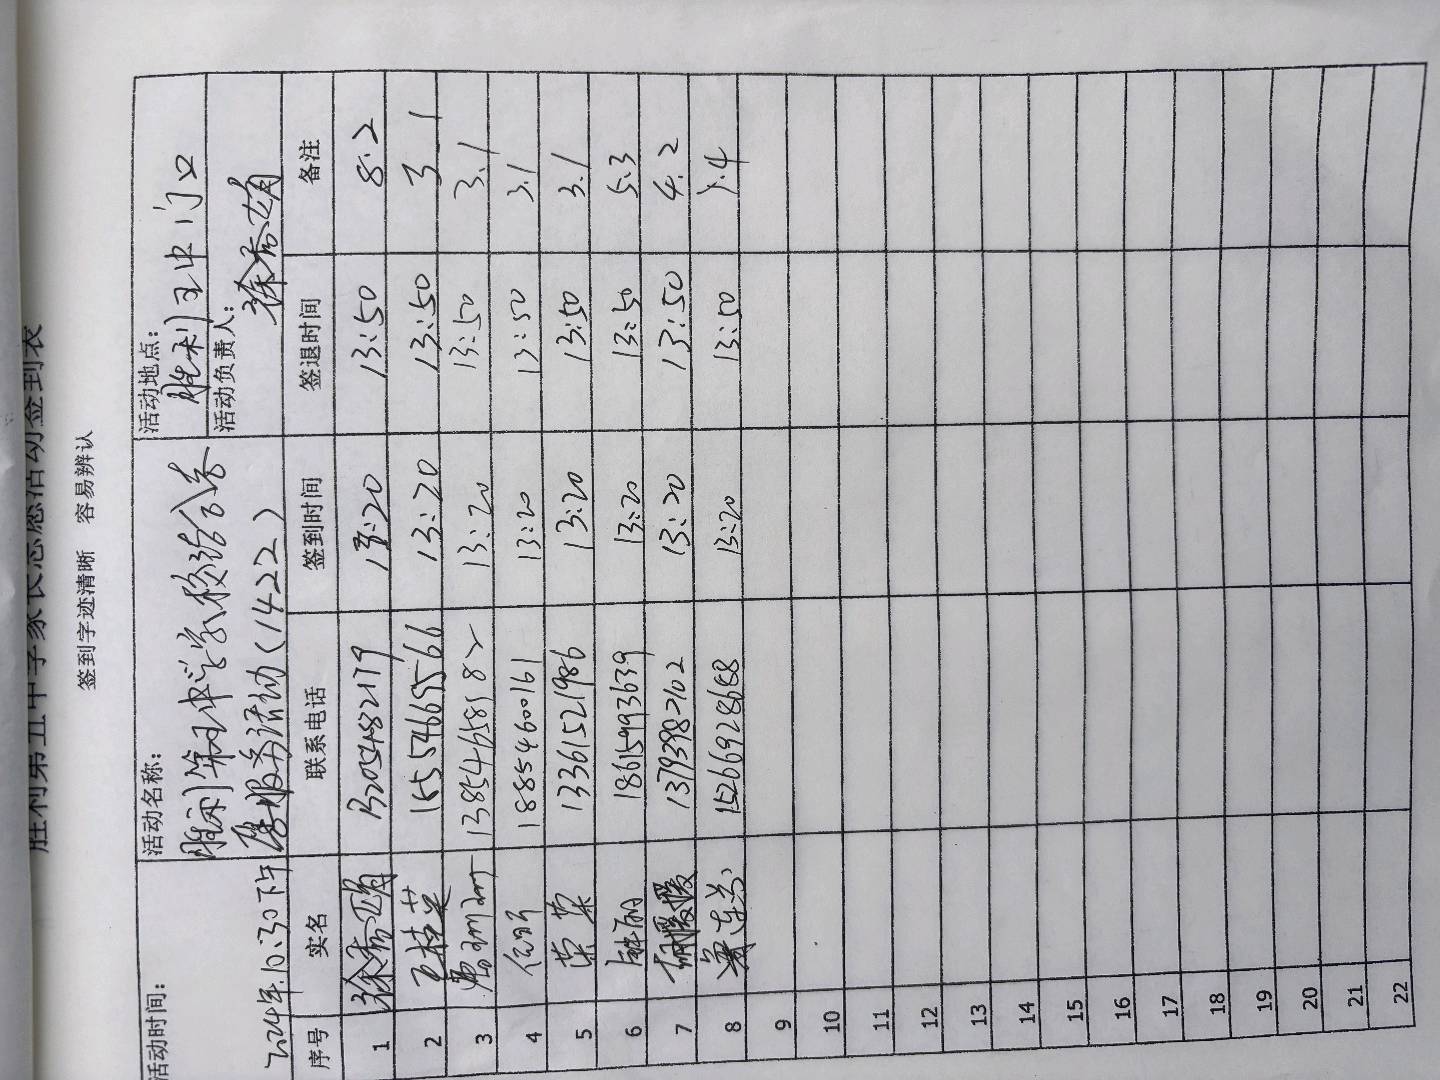 胜利第五中学家长志愿活动签到表
签到字迹清晰 容易辨认
活动时间：
2024年.10.30下午
活动名称：
胜利第五中学家校
服务活动（1422）
活动地点：
胜利五中门口
活动负责人：
序号 实名 联系电话 签到时间 签退时间 备注
1 13205482179 13:20 13:50 8.2
2 王桂英 15554669566 13:20 13:50 3.1
3 13:20 13:50 3.1
4 18854600161 13:20 13:50 3.1
5 荣荣 13361521986 13:20 13:50 3.1
6 18615993639 13:20 13:50 5.3
7 胡媛媛 13793987102 13:20 13:50 4.2
8 15266928688 13:20 13:50
9
10
11
12
13
14
15
16
17
18
19
20
21
22